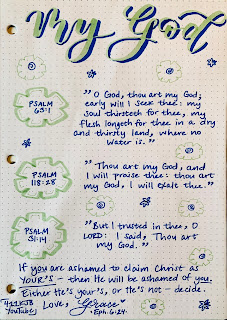 My God
PSALM
63:1
"O God, thou art my God;
early will I seek thee: my
soul thirsteth for thee, my
flesh longeth for thee in a dry
and thirsty land, where no
water is."
PSALM
118:28
"Thou art my God, and
I will praise thee: thou art
my God, I will exalt thee."
PSALM
31:14
"But I trusted in thee, O
LORD: I said, Thou art
my God."
If you are ashamed to claim Christ as
YOUR'S - then He will be ashamed of you.
Either He's your's, or He's not - decide.
411KJB
YouTube
Love, Grace
Eph. 6:24